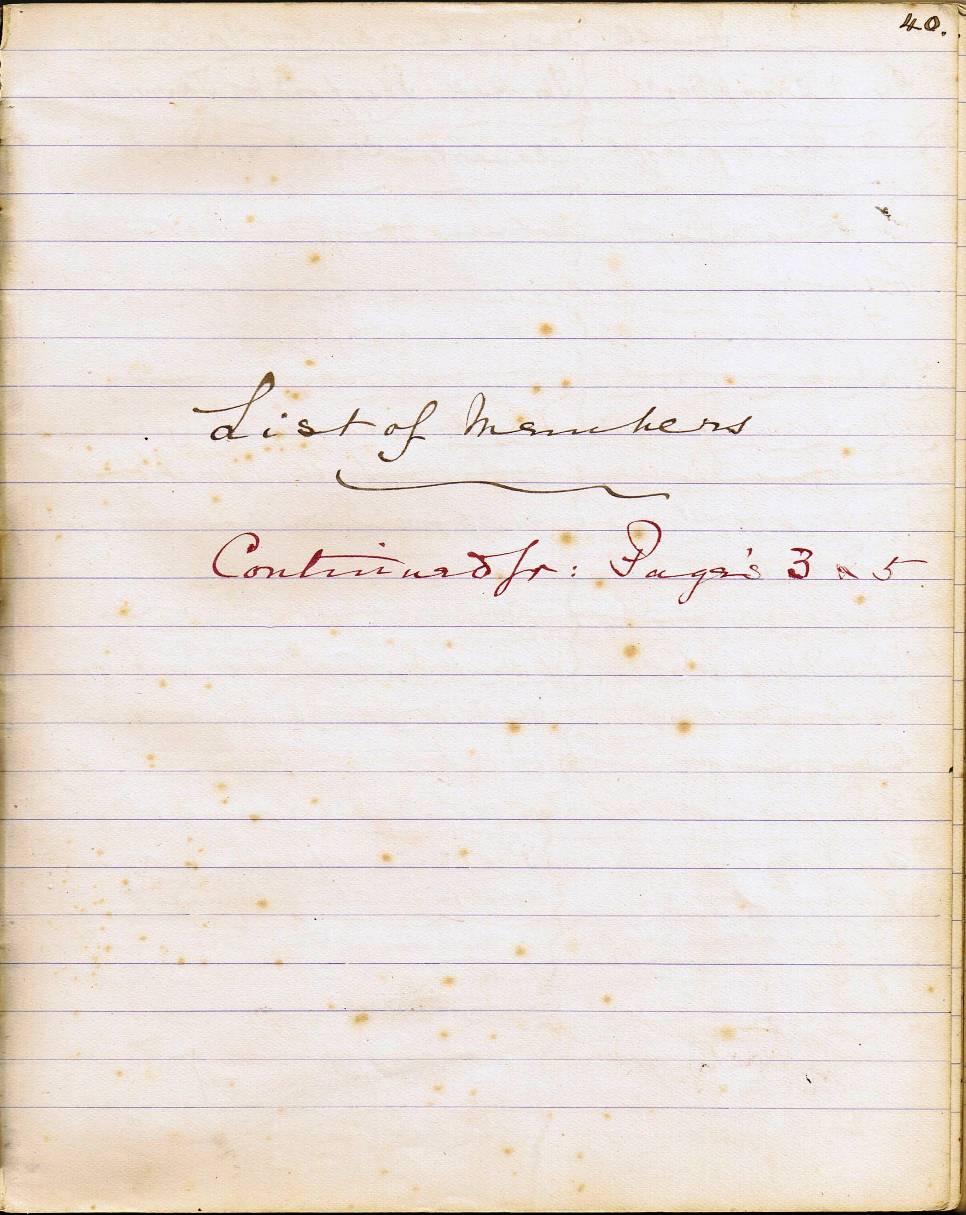 40.
List of Members
Continued fr: Page's 3 & 5